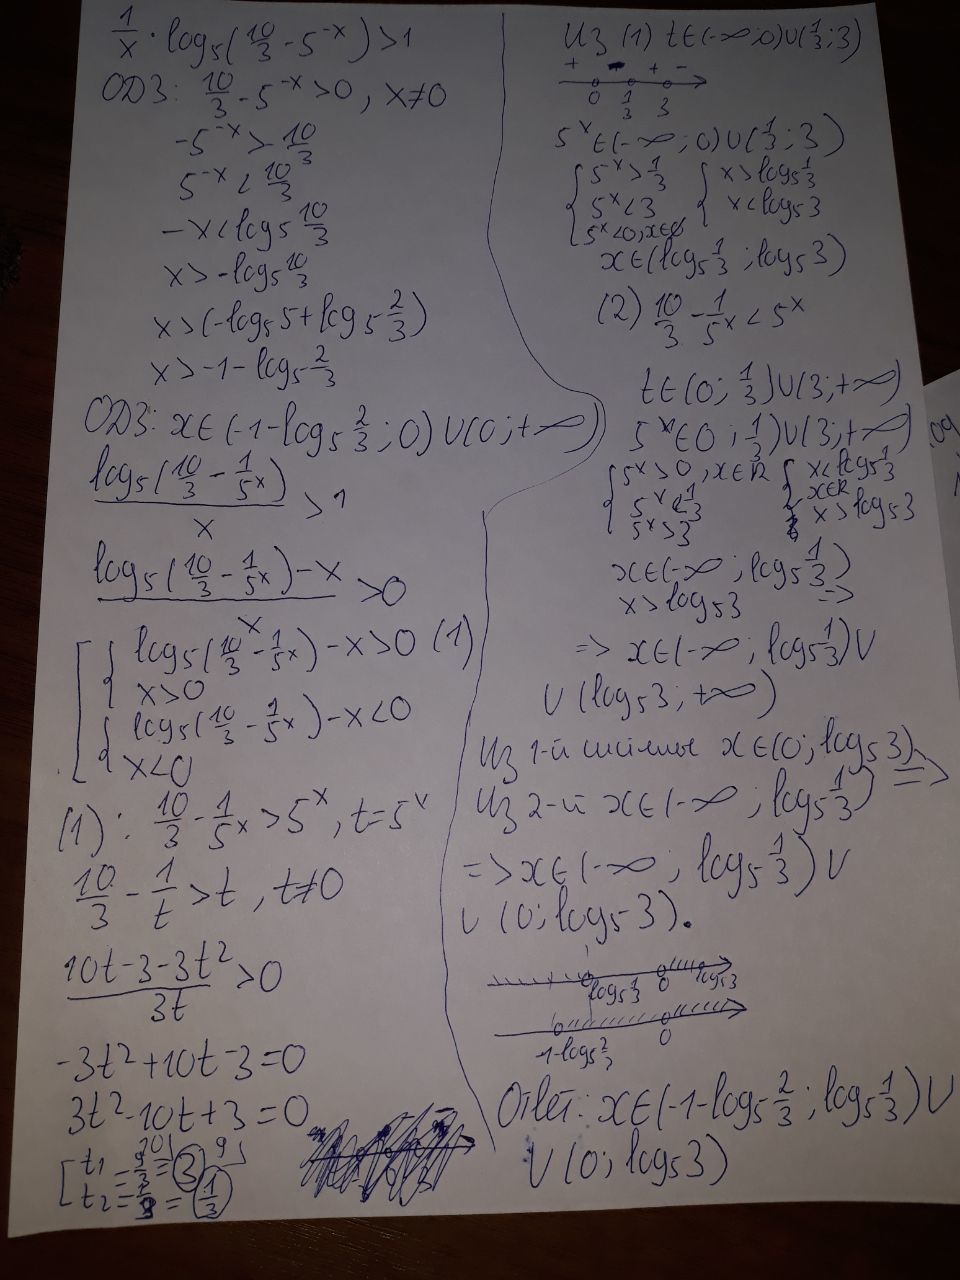 1/x · log₅(10/3 - 5^(-x)) > 1
ОДЗ: 10/3 - 5^(-x) > 0, x ≠ 0
-5^(-x) > -10/3
5^(-x) < 10/3
-x < log₅ 10/3
x > -log₅ 10/3
x > (-log₅ 5 + log₅ 2/3)
x > -1 - log₅ 2/3
ОДЗ: x ∈ (-1 - log₅ 2/3; 0) ∪ (0; +∞)
log₅(10/3 - 1/5^x) / x > 1
(log₅(10/3 - 1/5^x) - x) / x > 0
[ { log₅(10/3 - 1/5^x) - x > 0 (1)
x > 0
{ log₅(10/3 - 1/5^x) - x < 0
x < 0
(1): 10/3 - 1/5^x > 5^x, t = 5^x
10/3 - 1/t > t, t ≠ 0
(10t - 3 - 3t²) / 3t > 0
-3t² + 10t - 3 = 0
3t² - 10t + 3 = 0
[ t₁ = = 3
t₂ = = 1/3
Из (1) t ∈ (-∞; 0) ∪ (1/3; 3)
+ - + -
0 1/3 3
5^x ∈ (-∞; 0) ∪ (1/3; 3)
{ 5^x > 1/3 { x > log₅ 1/3
5^x < 3 x < log₅ 3
5^x < 0, x ∈ ∅
x ∈ (log₅ 1/3; log₅ 3)
(2) 10/3 - 1/5^x < 5^x
t ∈ (0; 1/3) ∪ (3; +∞)
5^x ∈ 0; 1/3) ∪ (3; +∞)
{ 5^x > 0, x ∈ R { x < log₅ 1/3
5^x < 1/3 x ∈ R
5^x > 3 x > log₅ 3
x ∈ (-∞; log₅ 1/3)
x > log₅ 3 =>
=> x ∈ (-∞; log₅ 1/3) ∪
∪ (log₅ 3; +∞)
Из 1-й системы x ∈ (0; log₅ 3)
Из 2-й x ∈ (-∞; log₅ 1/3) =>
=> x ∈ (-∞; log₅ 1/3) ∪
∪ (0; log₅ 3).
log₅ 1/3 0 log₅ 3
-1-log₅ 2/3 0
Ответ: x ∈ (-1 - log₅ 2/3; log₅ 1/3) ∪
∪ (0; log₅ 3)